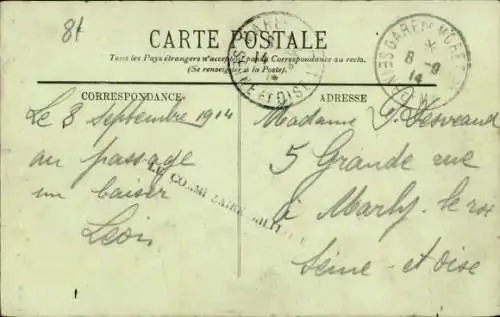 81
CARTE POSTALE
Tous les Pays étrangers n'acceptent pas la Correspondance au recto.
(Se renseigner à la Poste).
CORRESPONDANCE
Le 8 Septembre 1914
au passage
un baiser
Léon
ADRESSE
Madame
5 Grande rue
à Marly-le-roi
Seine-et-oise
14
SEINE ET OISE
GARE
8 - 9
14
LE COMMISSAIRE MILIT